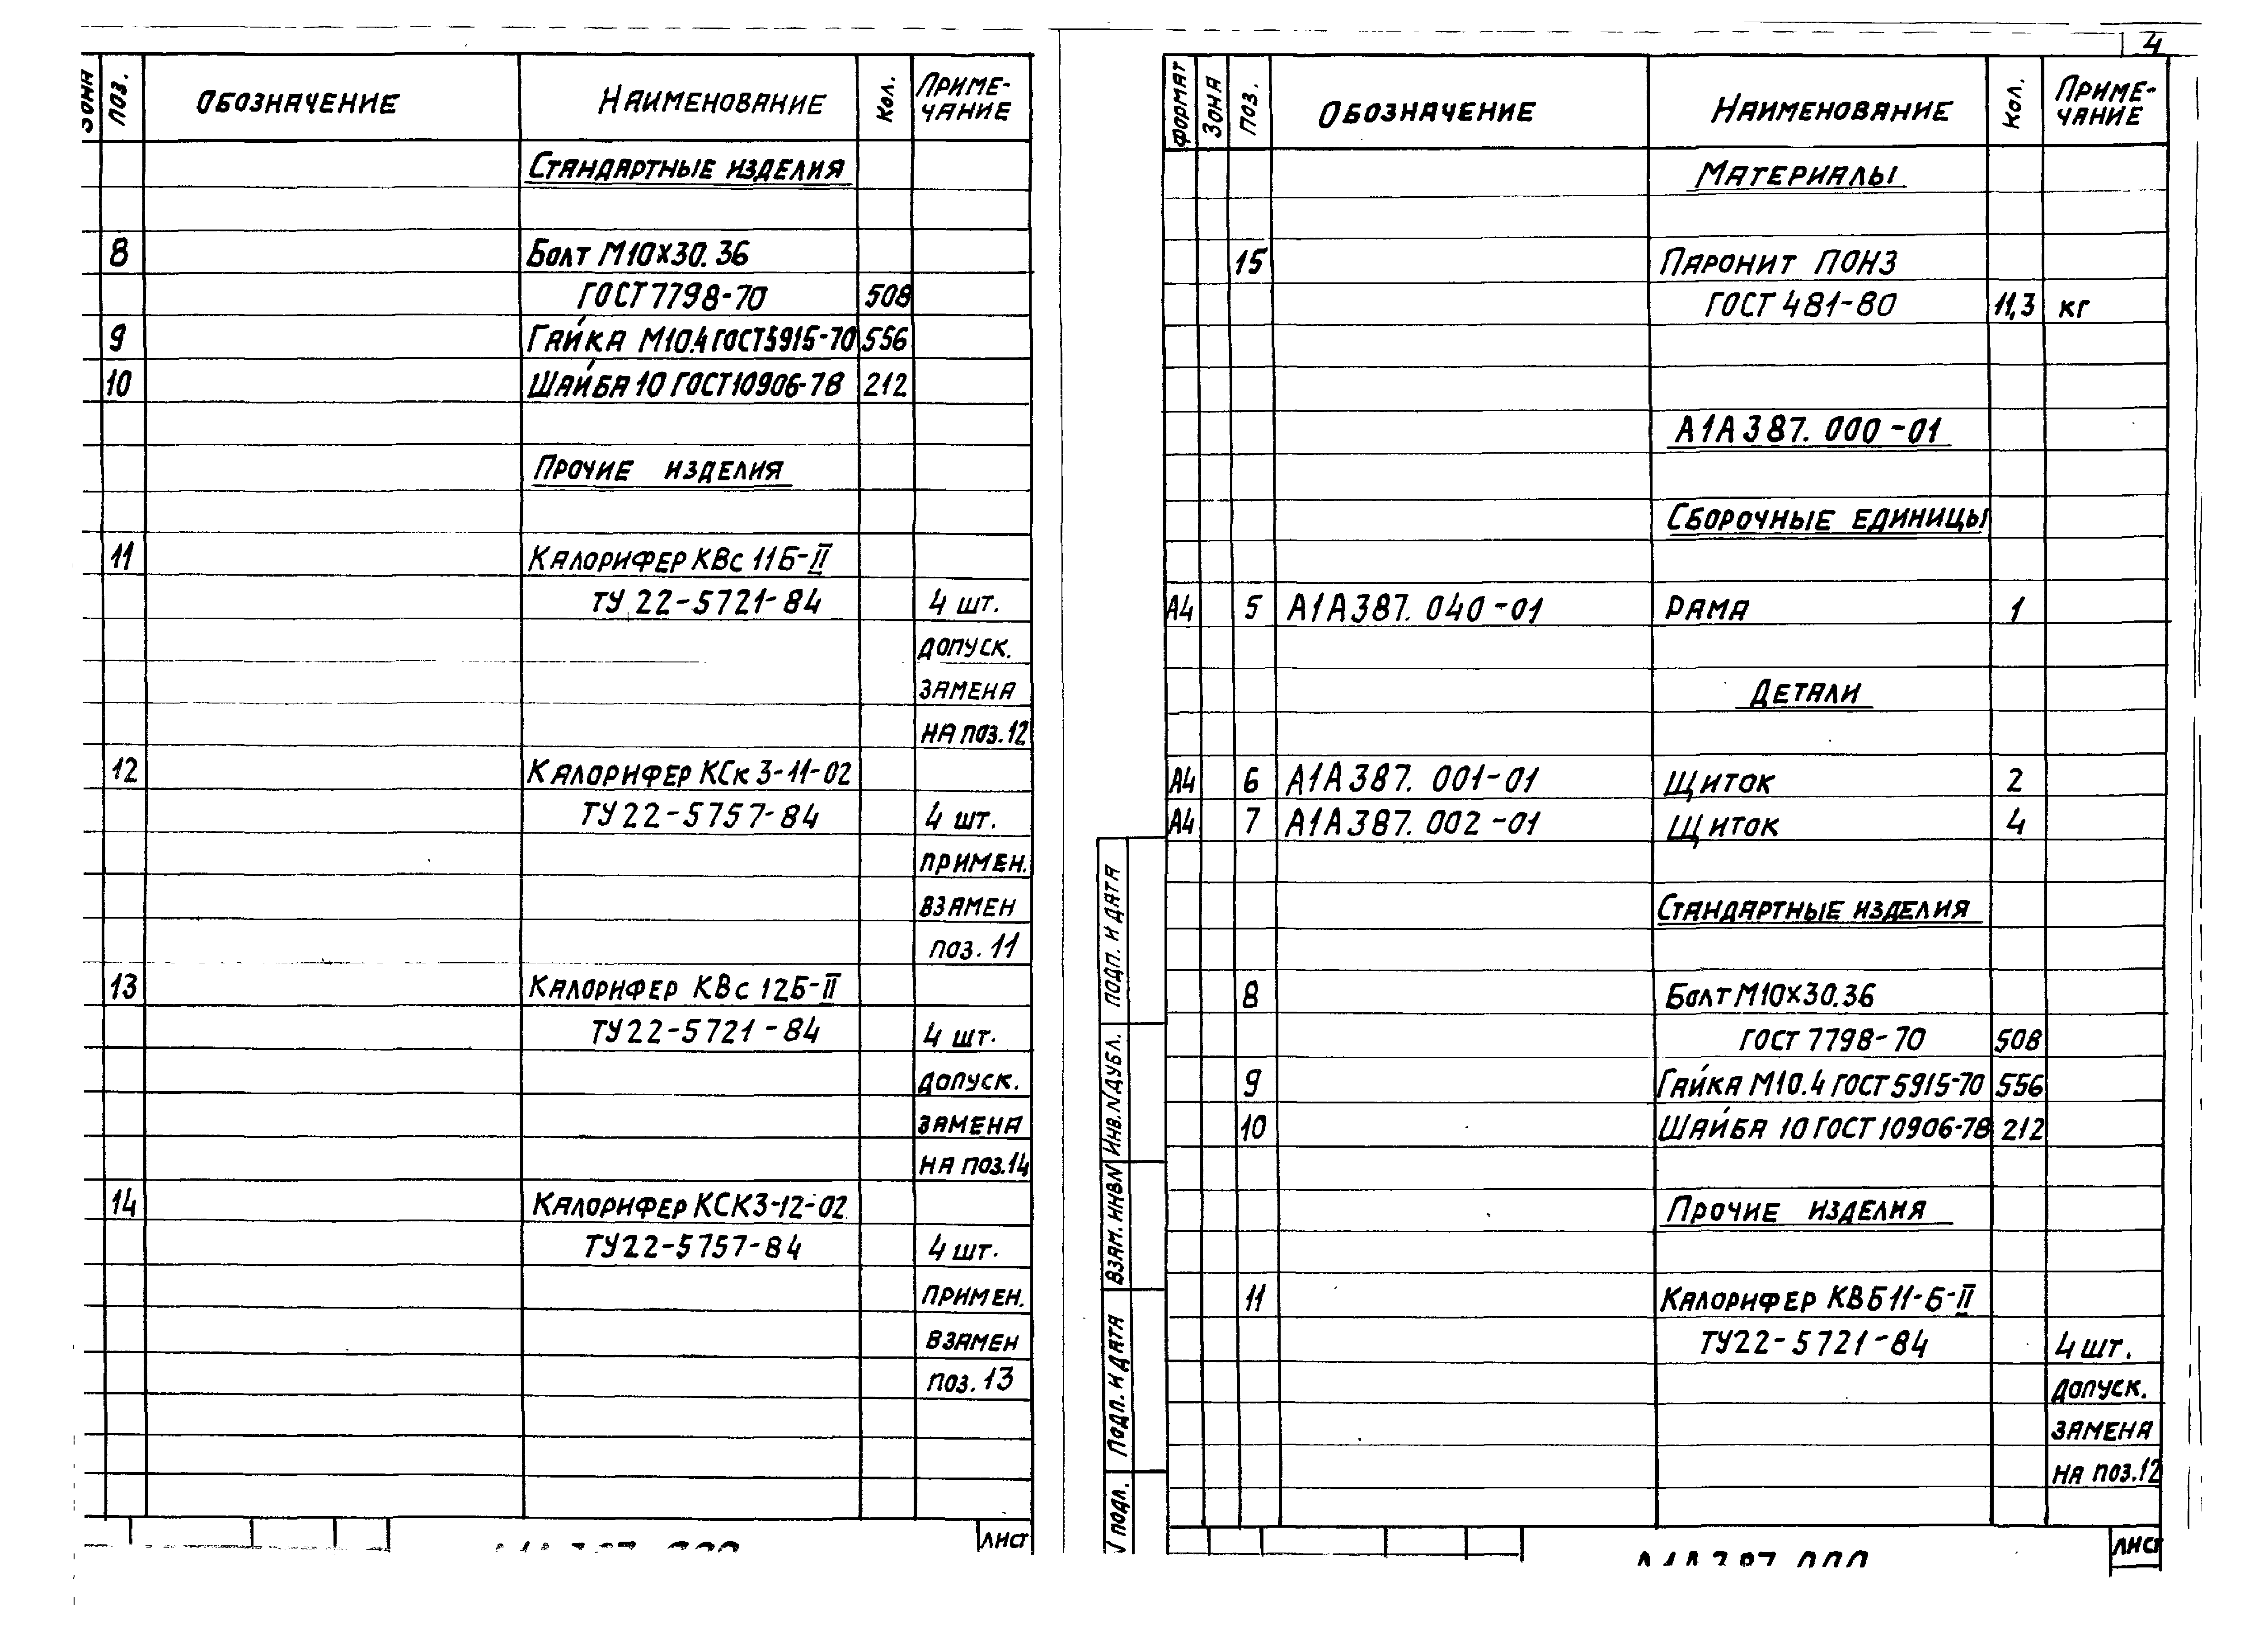 Зона Поз. Обозначение Наименование Кол. Приме-
чание
Стандартные изделия
8 Болт М10х30.36
ГОСТ 7798-70 508
9 Гайка М10.4 ГОСТ 5915-70 556
10 Шайба 10 ГОСТ 10906-78 212
Прочие изделия
11 Калорифер КВс 11Б-II
ТУ 22-5721-84 4 шт.
допуск.
замена
на поз.12
12 Калорифер КСк 3-11-02
ТУ 22-5757-84 4 шт.
примен.
взамен
поз. 11
13 Калорифер КВс 12Б-II
ТУ 22-5721-84 4 шт.
допуск.
замена
на поз.14
14 Калорифер КСК3-12-02
ТУ22-5757-84 4 шт.
примен.
взамен
поз. 13
лист
4
Формат Зона Поз. Обозначение Наименование Кол. Приме-
чание
Материалы
15 Паронит ПОН3
ГОСТ 481-80 11,3 кг
А1А387.000-01
Сборочные единицы
А4 5 А1А387.040-01 Рама 1
Детали
А4 6 А1А387.001-01 Щиток 2
А4 7 А1А387.002-01 Щиток 4
Стандартные изделия
8 Болт М10х30.36
ГОСТ 7798-70 508
9 Гайка М10.4 ГОСТ 5915-70 556
10 Шайба 10 ГОСТ 10906-78 212
Прочие изделия
11 Калорифер КВБ11-Б-II
ТУ22-5721-84 4 шт.
допуск.
замена
на поз.12
Подп. и дата
Инв.N дубл.
Взам. инв N
Подп. и дата
N подл.
А1А387.000
лист